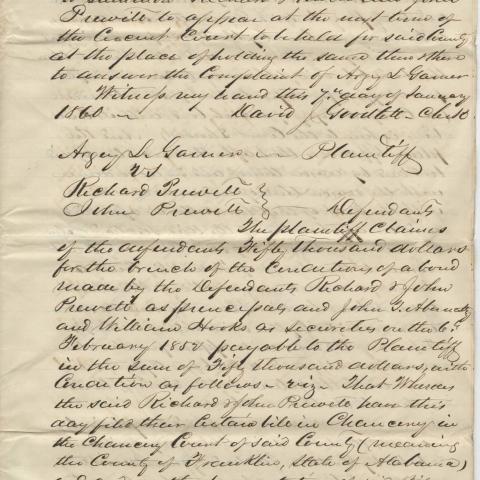 to summon Richard Prewett and John
Prewett to appear at the next term of
the Circuit Court to be held for said County
at the place of holding the same then & there
to answer the Complaint of Argey S. Garner
Witness my hand this 7th day of January
1860 David J Goodlett Clerk
Argey S. Garner Plaintiff
vs
Richard Prewett }
John Prewett } Defendants
The plaintiff Claims
of the defendants Fifty thousand dollars
for the breach of the Conditions of a bond
made by the Defendants Richard & John
Prewett as principals and John T. Abernathy
and William Hooks as securities on the 6th
February 1852 payable to the Plaintiff
in the sum of Fifty thousand dollars, with
Condition as follows viz That Whereas
the said Richard & John Prewett have this
day filed their Certain bill in Chancery in
the Chancery Court of said County (meaning
the County of Franklin, State of Alabama)